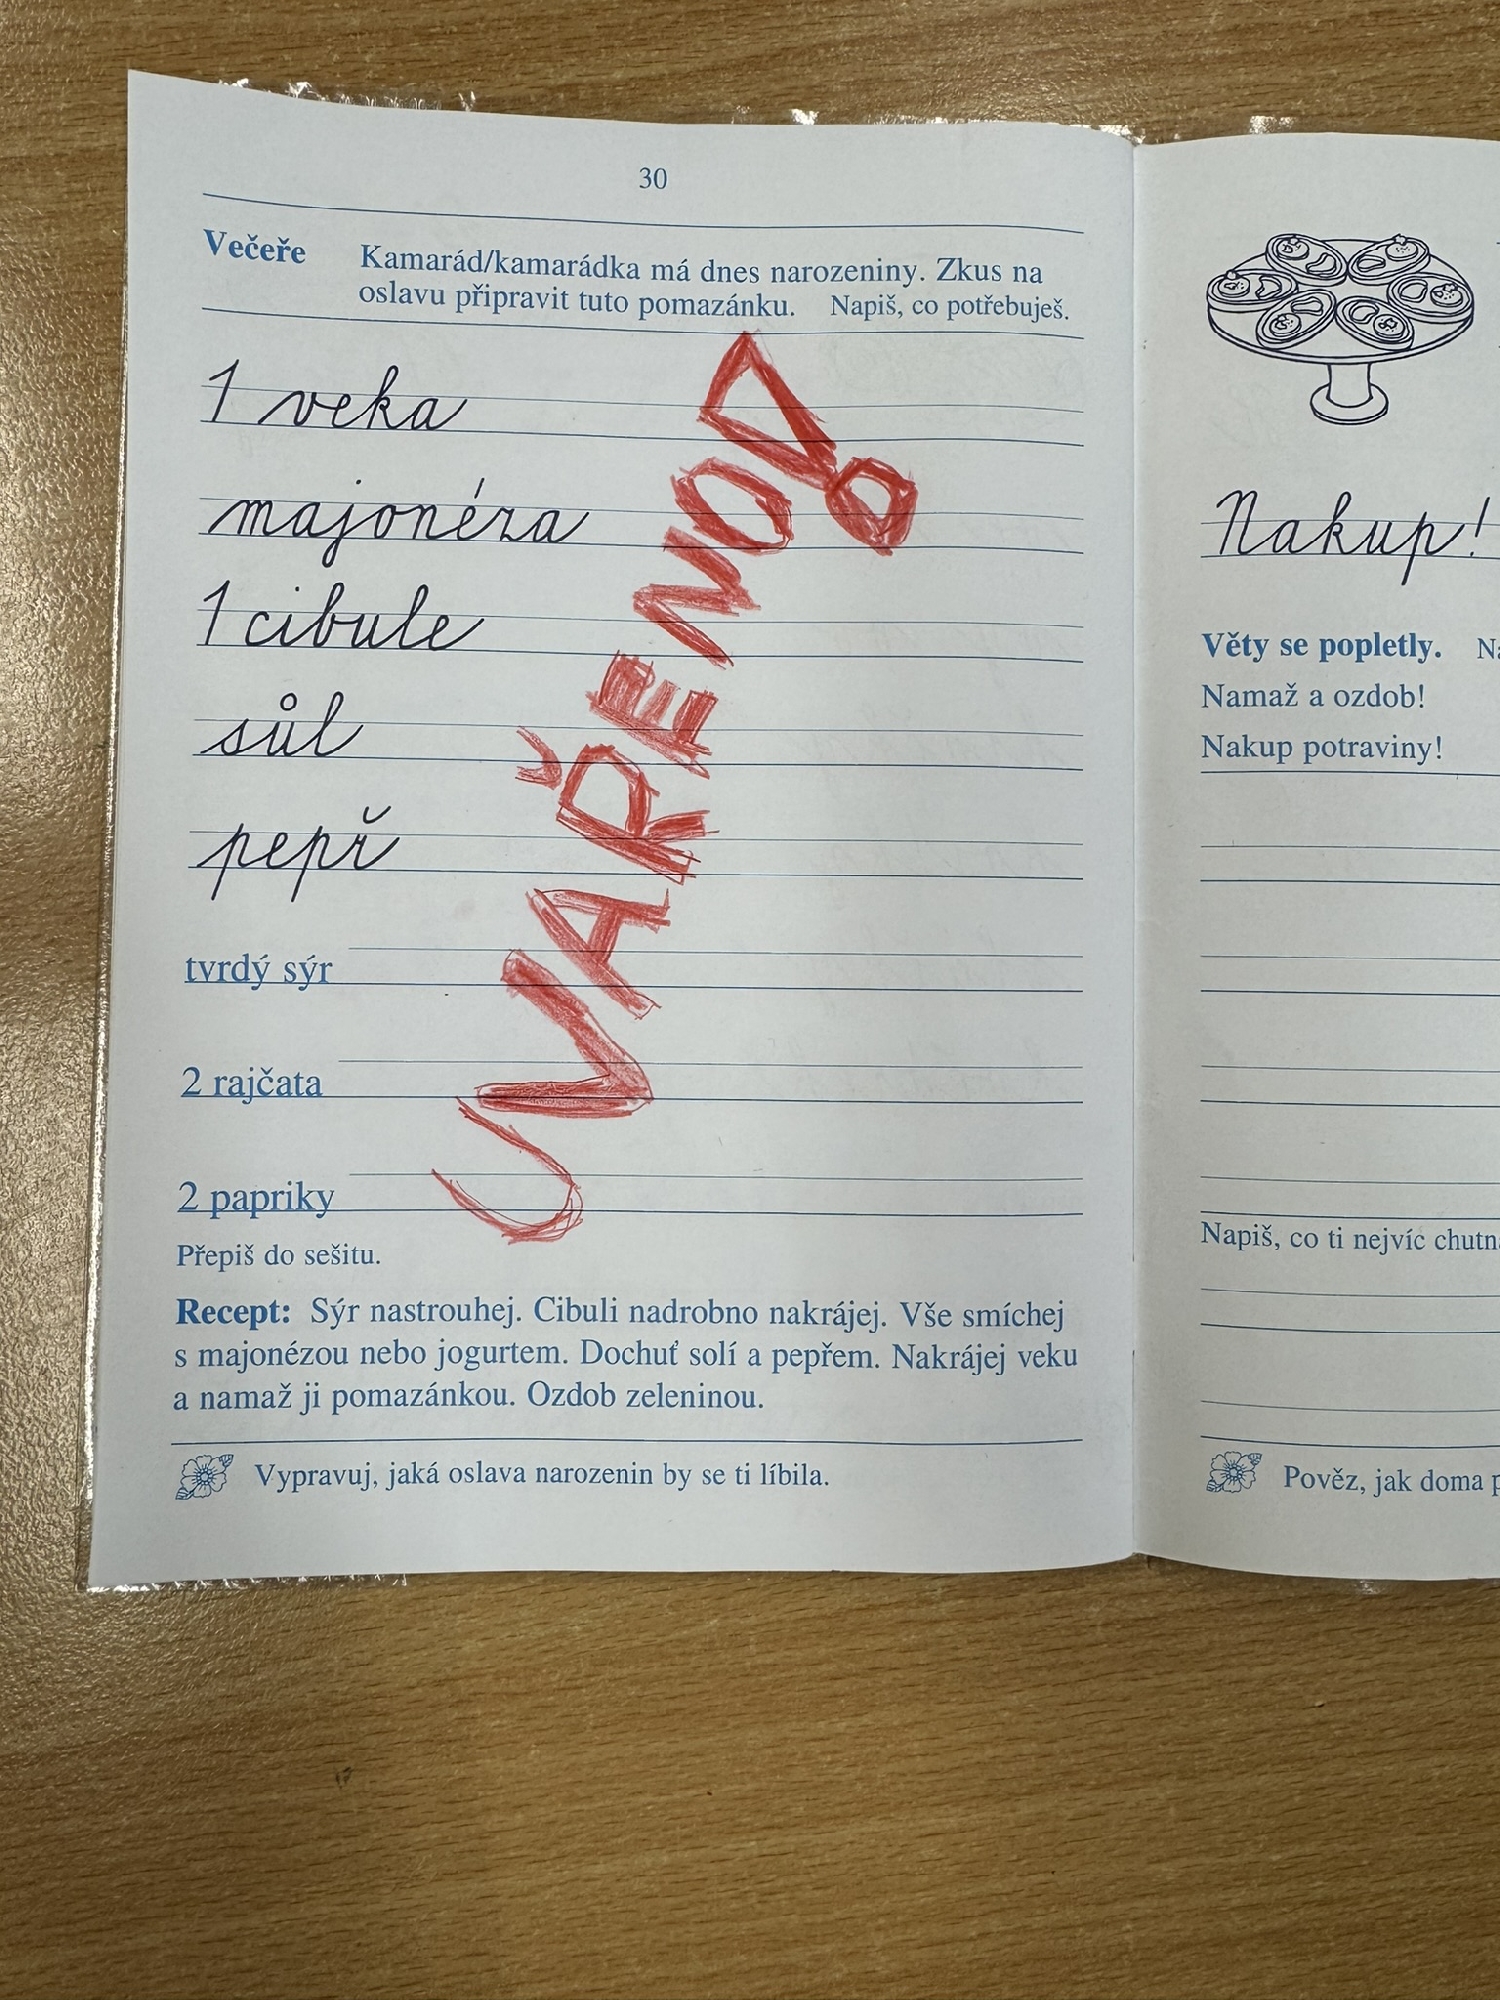 30
Večeře Kamarád/kamarádka má dnes narozeniny. Zkus na
oslavu připravit tuto pomazánku. Napiš, co potřebuješ.
1 veka
majonéza
1 cibule
sůl
pepř
tvrdý sýr
2 rajčata
2 papriky
UVAŘENO!
Přepiš do sešitu.
Recept: Sýr nastrouhej. Cibuli nadrobno nakrájej. Vše smíchej
s majonézou nebo jogurtem. Dochuť solí a pepřem. Nakrájej veku
a namaž ji pomazánkou. Ozdob zeleninou.
Vypravuj, jaká oslava narozenin by se ti líbila.
Nakup!
Věty se popletly.
Namaž a ozdob!
Nakup potraviny!
Napiš, co ti nejvíc
Pověz, jak doma